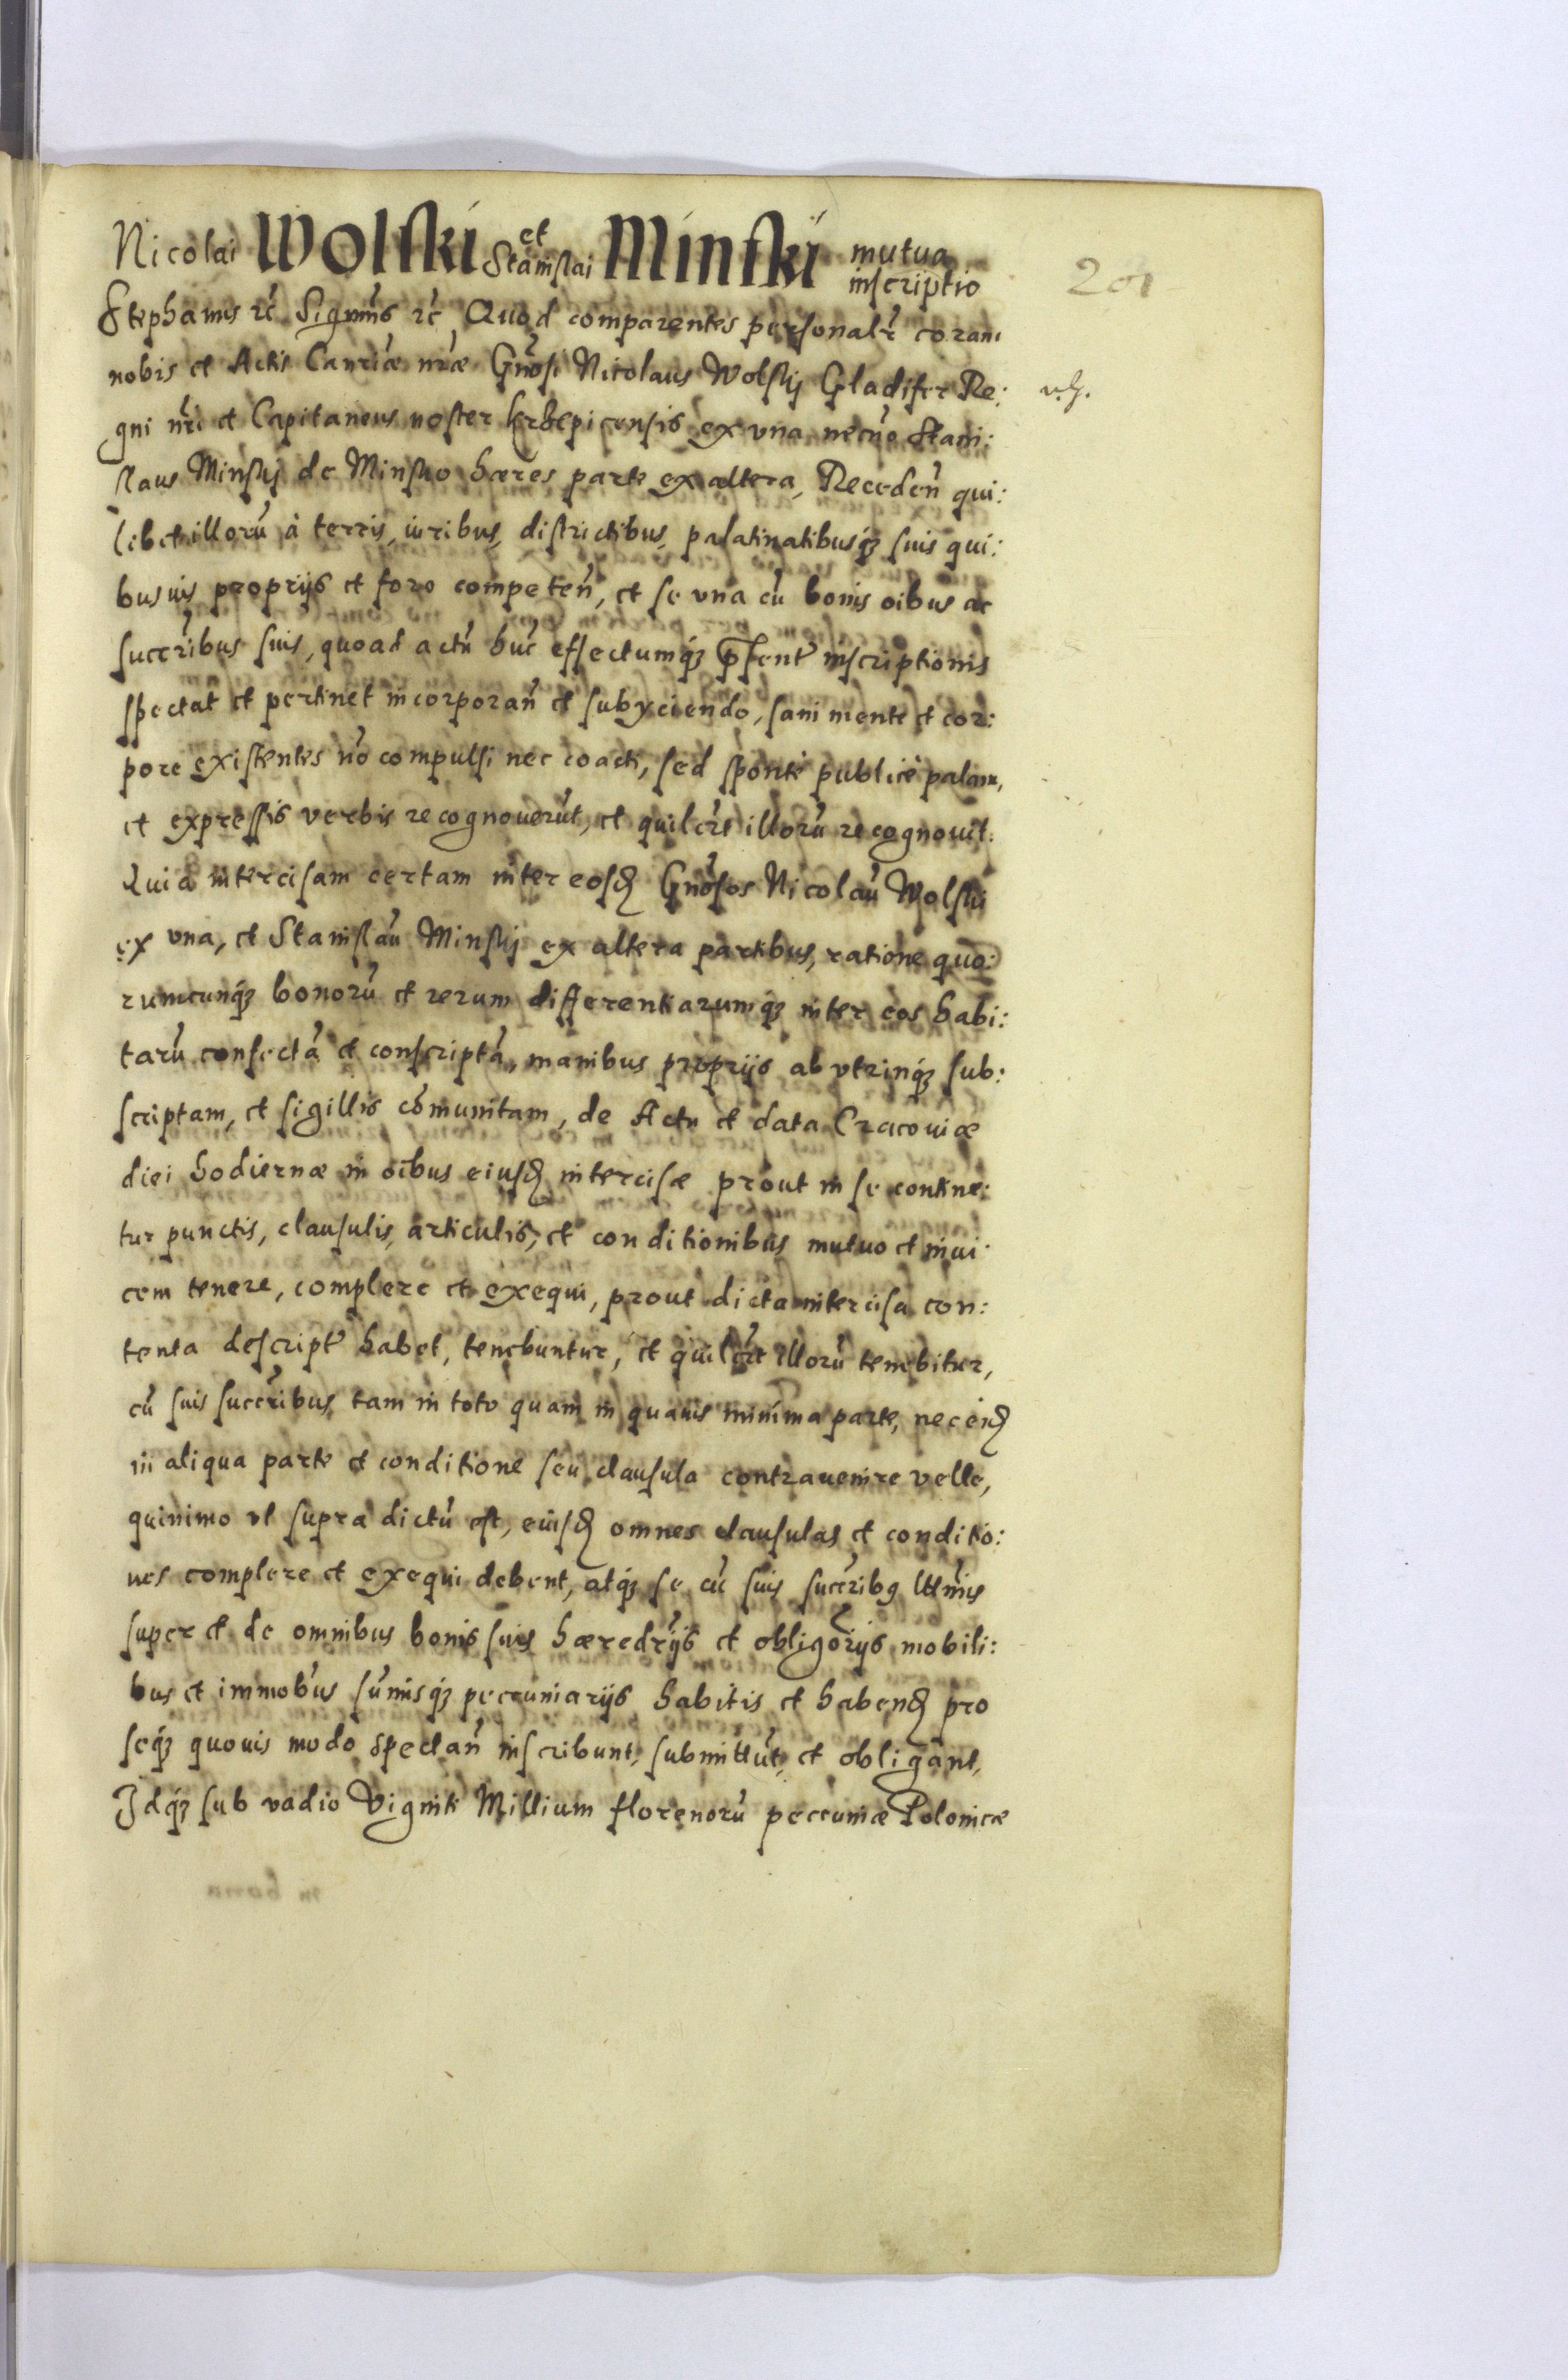 Nicolai Wolski et Stanislai Minski mutua inscriptio
201
Stephanus rč Signm̃s rč Quod comparentes personalr̃ coram
nobis et Actis Canriæ nr̃æ Gnõsi Nicolaus Wolskij Gladifer Re:
gni nr̃i et Capitaneus noster Krzepicensis ex vna necno Stani:
slaus Minskij de Minsko hæres parte ex altera, Receden̄ qui:
libet illorū à terris, iuribus, districtibus, palatinatibusq́ȝ suis qui:
busuis proprijs et foro competen̄, et se vna cū bonis oībus ac
succribus suis, quoad actū huc̄ effectumq́ȝ pn̄sent̃ inscriptionis
spectat et pertinet incorporan̄ et subyciendo, sani mente et cor:
pore existentes nō compulsi nec coacti, sed sponte publice palam,
et expressis verbis recognouerūt, et quilt̃ illorū recognouit.
Quia intercisam certam inter eosd Gnõsos Nicolaū Wolski
ex vna, et Stanislaū Minskij ex altera partibus, ratione quo:
rumcunq́ȝ bonorū et rerum differentiarumq́ȝ inter eos habi:
tarū confectā et conscriptā, manibus proprijs ab vtrinq́ȝ sub:
scriptam, et sigillis cōmunitam, de Actu et data Cracouiæ
diei hodiernæ in oībus eiusd intercisæ prout in se contine:
tur punctis, clausulis, articulis, et conditionibus mutuo et inui
cem tenere, complere et exequi, prout dicta intercisa con:
tenta descript̃ habet, tenebuntur, et quilt̃ illorū tenebitur,
cū suis succribus tam in toto quam in quauis minima parte, nec eid
in aliqua parte et conditione seu clausula contrauenire velle,
quinimo vt supra dictū est, eiusd omnes clausulas et conditio:
nes complere et exequi debent, atq́ȝ se cū suis succribus lttmis
super et de omnibus bonis suis hæredrijs et obligorijs mobili:
bus et immobus sūmisq́ȝ peccuniarijs habitis et habend pro
seq́ȝ quouis modo spectan̄ inscribunt, submittūt, et obligant,
Idq́ȝ sub vadio Viginti Millium florenorū peccuniæ Polonicæ